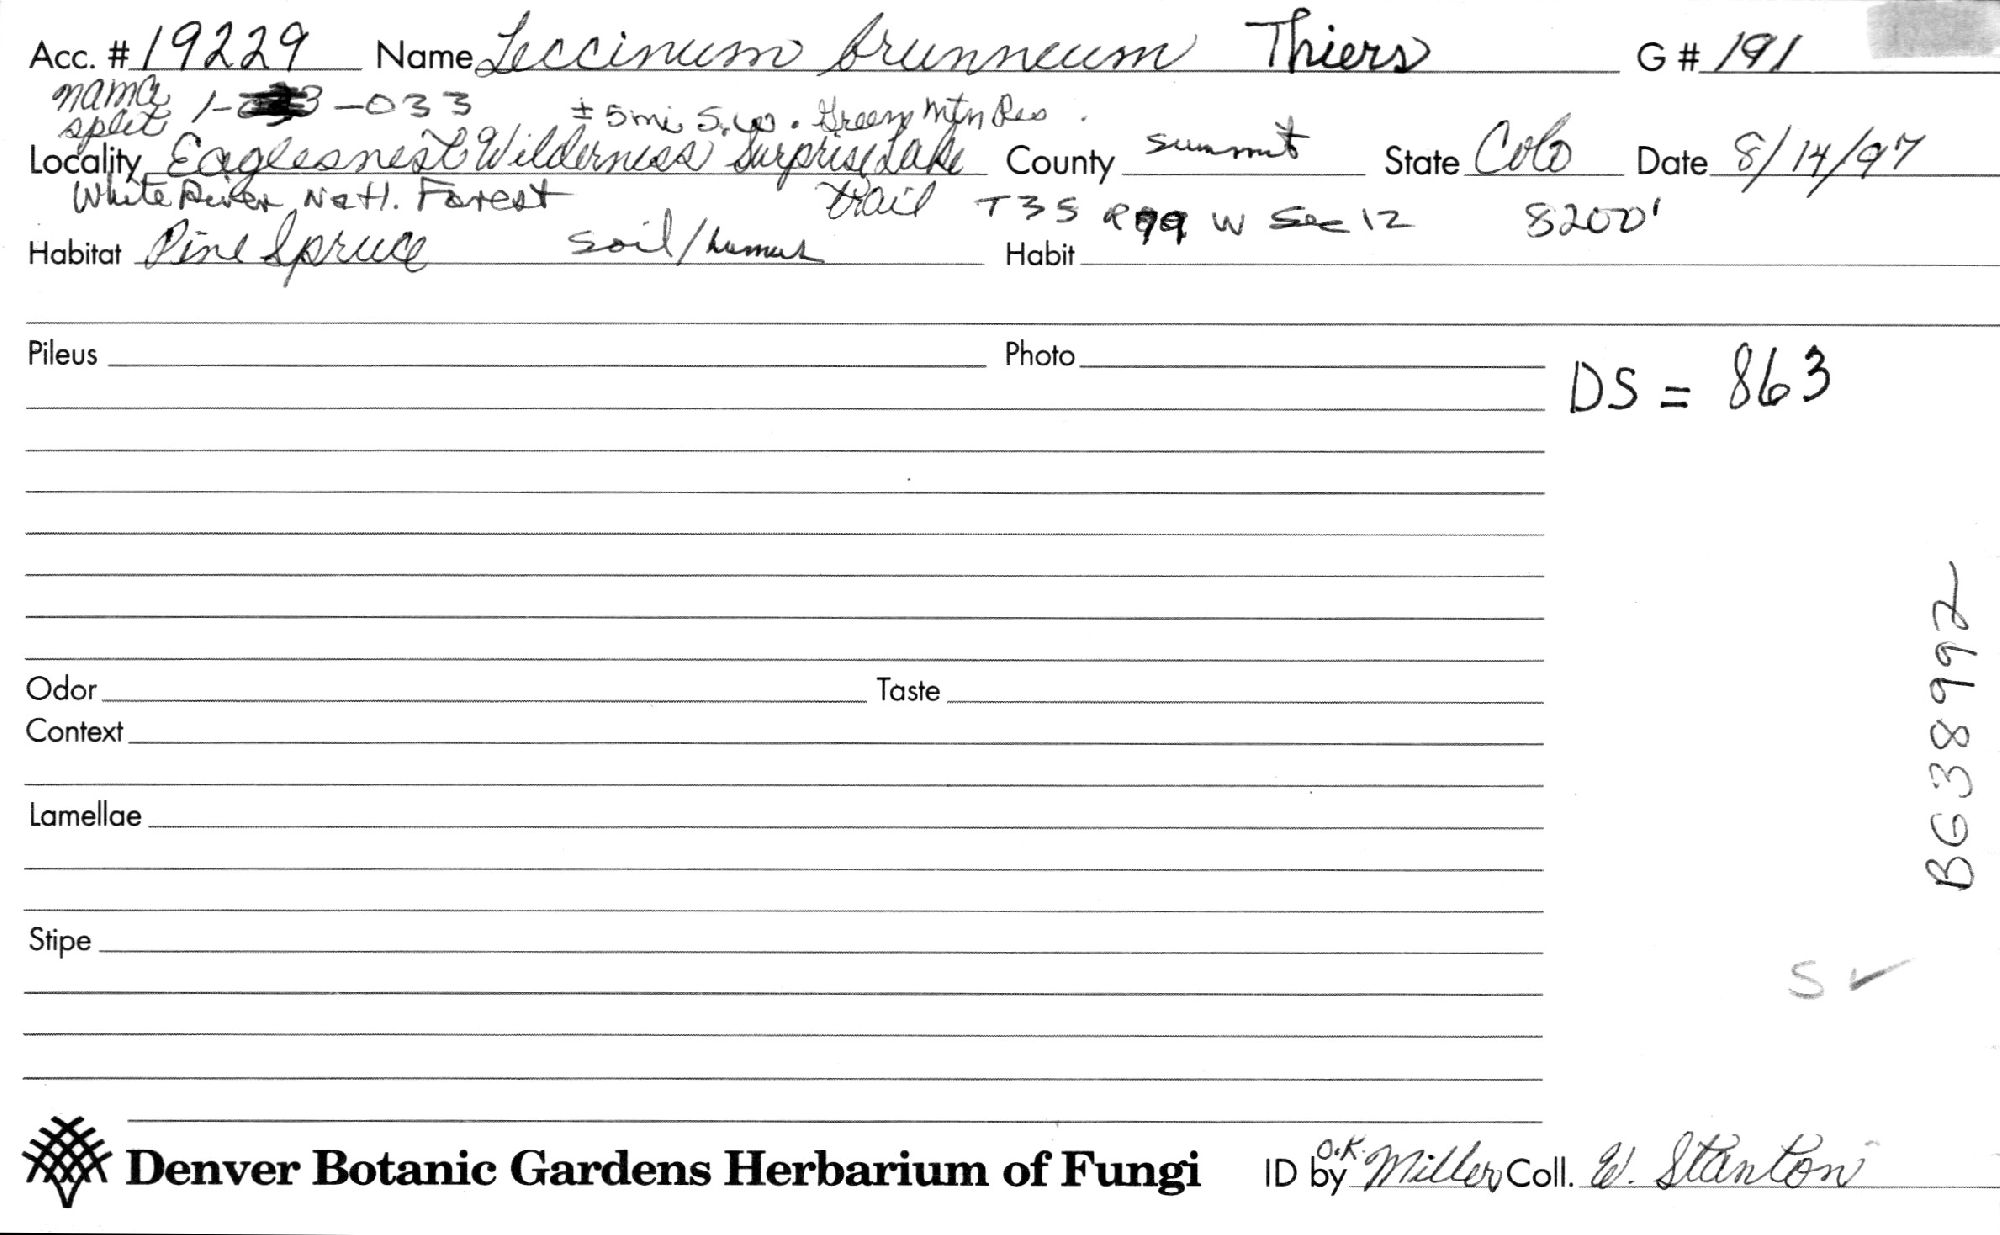 Acc. # 19229 Name Leccinum brunneum Thiers G # 191
nama split 1- 3 -033 ± 5 mi S.W. Green Mtn Res.
Locality Eaglesnest Wilderness Surprise Lake County Summit State Colo Date 8/14/97
White River Natl. Forest trail T3S R79W Sec 12 8200'
Habitat Pine Spruce soil/humus Habit
Pileus Photo
DS = 863
Odor Taste
Context
Lamellae
Stipe
BG38992
S ✓
Denver Botanic Gardens Herbarium of Fungi ID by O.K. Miller Coll. W. Stanton